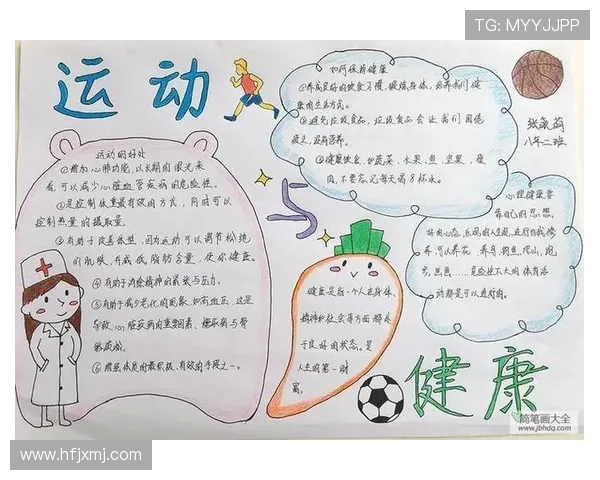 TG: MYYJJPP
运动
与
健康
张
八年二班
运动的好处
①增加心肺功能,以长期的眼光来
看,可以减少心脏血管疾病的危险性。
②是控制体重最有效的方式,同时可以
控制热量的摄取量。
③有助于改善体型,因为运动可以调节松弛
的肌肤,并减低脂肪含量,使你健康。
④有助于消除精神的紧张与压力。
⑤有助于减少老化的因素,如高血压,这是
导致心脏疾病的重要因素、糖尿病与骨
骼疏松。
⑥增强体质的最积极、有效的手段之一。
如何保持健康
①养成良好的饮食习惯,锻炼身体,培养我们健
康的生活方式。
②避免垃圾食品,垃圾食品会让我们困倦
疲乏,没有营养。
③健康饮食,如蔬菜、水果、鱼、坚果、瘦
肉,不要忘记每天喝8杯水。
心理健康要
靠自己的思想,
好的心态,乐观的人生观,进行自我修
养,可以养花、养鸟、钓鱼、爬山、跑
步、
危险性不大的体育活
动都是可以进行的。
健康是指一个人在身体、
精神和社会等方面都处
于良好的状态。是
人生的第一财
富。
简笔画大全
www.jbhdq.com
www.hfjxmj.com